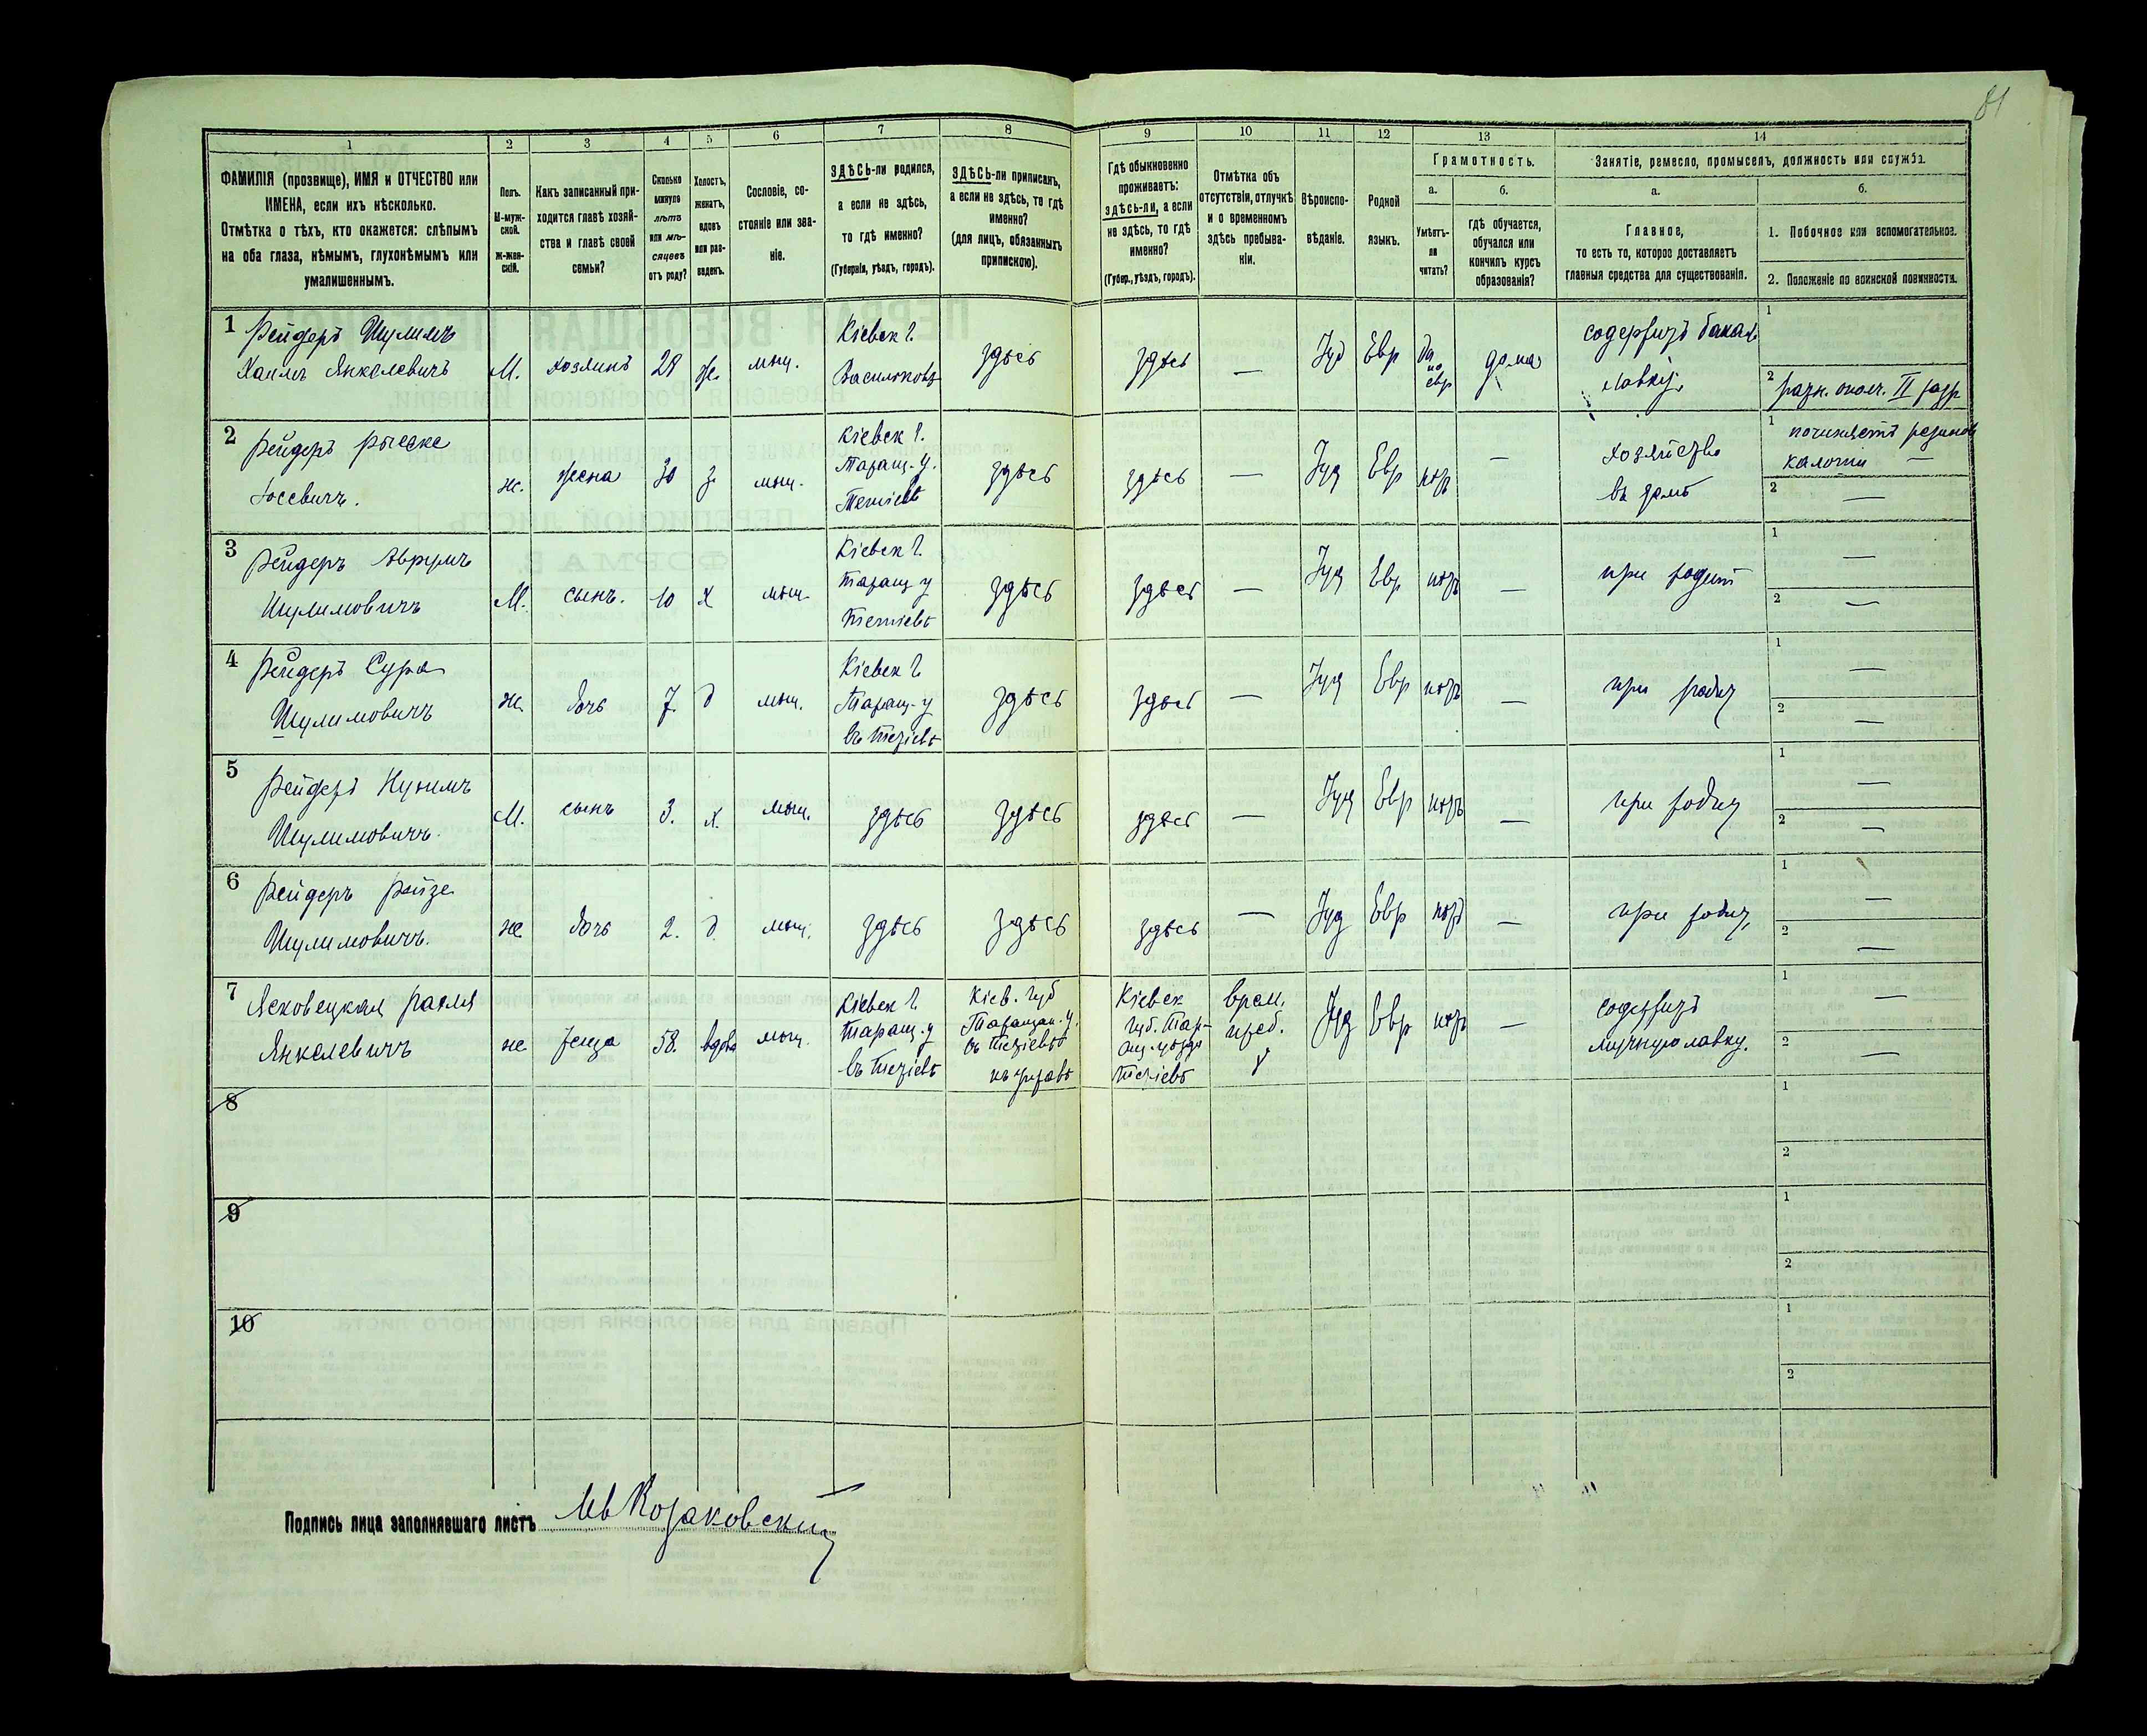 81
1
2
3
4
5
6
7
8
9
10
11
12
13
14
ФАМИЛІЯ (прозвище), ИМЯ и ОТЧЕСТВО или
ИМЕНА, если ихъ нѣсколько.
Отмѣтка о тѣхъ, кто окажется: слѣпымъ
на оба глаза, нѣмымъ, глухонѣмымъ или
умалишеннымъ.
Полъ.
М-муж-
ской.
ж-жен-
скій.
Какъ записанный при-
ходится главѣ хозяй-
ства и главѣ своей
семьи?
Сколько
минуло
лѣтъ
или мѣ-
сяцевъ
отъ роду?
Холостъ,
женатъ,
вдовъ
или раз-
веденъ.
Сословіе, со-
стояніе или зва-
ніе.
ЗДѢСЬ-ли родился,
а если не здѣсь,
то гдѣ именно?
(Губернія, уѣздъ, городъ).
ЗДѢСЬ-ли приписанъ,
а если не здѣсь, то гдѣ
именно?
(для лицъ, обязанныхъ
припискою).
Гдѣ обыкновенно
проживаетъ:
здѣсь-ли, а если
не здѣсь, то гдѣ
именно?
(Губер., уѣздъ, городъ).
Отмѣтка объ
отсутствіи, отлучкѣ
и о временномъ
здѣсь пребыва-
ніи.
Вѣроиспо-
вѣданіе.
Родной
языкъ.
Грамотность.
а.
б.
Умѣетъ-
ли
читать?
Гдѣ обучается,
обучался или
кончилъ курсъ
образованія?
Занятіе, ремесло, промыселъ, должность или служба.
а.
б.
Главное,
то есть то, которое доставляетъ
главныя средства для существованія.
1. Побочное или вспомогательное.
2. Положеніе по воинской повинности.
1 Рейдеръ Шулимъ
Хаимъ Янкелевичъ
М.
хозяинъ
28
ж.
мѣщ.
Кіевск г.
Васильковъ
здѣсь
здѣсь
—
Іуд
Евр
да
по
евр
дома
содержитъ бакал.
лавку.
1
2 ратн. ополч. II разр
2 Рейдеръ
Іосевичъ.
ж.
жена
30
з
мѣщ.
Кіевск г.
Таращ. у.
Тетіевѣ
здѣсь
здѣсь
—
Іуд
Евр
нѣтъ
—
хозяйство
въ домѣ
1 починяетъ резинов
калоши —
2 —
3 Рейдеръ Аврумъ
Шулимовичъ
М.
сынъ.
10
х
мѣщ.
Кіевск г.
Таращ у
Тетіевѣ
здѣсь
здѣсь
—
Іуд
Евр
нѣтъ
—
при родит
1 —
2 —
4 Рейдеръ Сура
Шулимовичъ
ж.
дочь
7.
д
мѣщ.
Кіевск г
Таращ. у
въ Тетіевѣ
здѣсь
здѣсь
—
Іуд
Евр
нѣтъ
—
при родит
1 —
2 —
5 Рейдеръ Нухимъ
Шулимовичъ.
М.
сынъ
3.
х.
мѣщ.
здѣсь
здѣсь
здѣсь
—
Іуд
Евр
нѣтъ
—
при родит
1 —
2 —
6 Рейдеръ Рейзе
Шулимовичъ.
ж
дочь
2.
д.
мѣщ.
здѣсь
здѣсь
здѣсь
—
Іуд
Евр
нѣтъ
—
при родит,
1 —
2 —
7 Ясковецкая
Янкелевичъ
ж
теща
58.
вдова
мѣщ.
Кіевск г.
Таращ. у
въ Тетіевѣ
Кіев. губ
Таращан. у.
въ Тетіевѣ
Кіевск
губ. Тар-
ащ. уѣзда
Тетіевѣ
врем.
преб.
Іуд
Евр
нѣтъ
—
содержитъ
мучную лавку.
1 —
2 —
8
1
2
9
1
2
10
1
2
Подпись лица заполнявшаго листъ Козаковскій